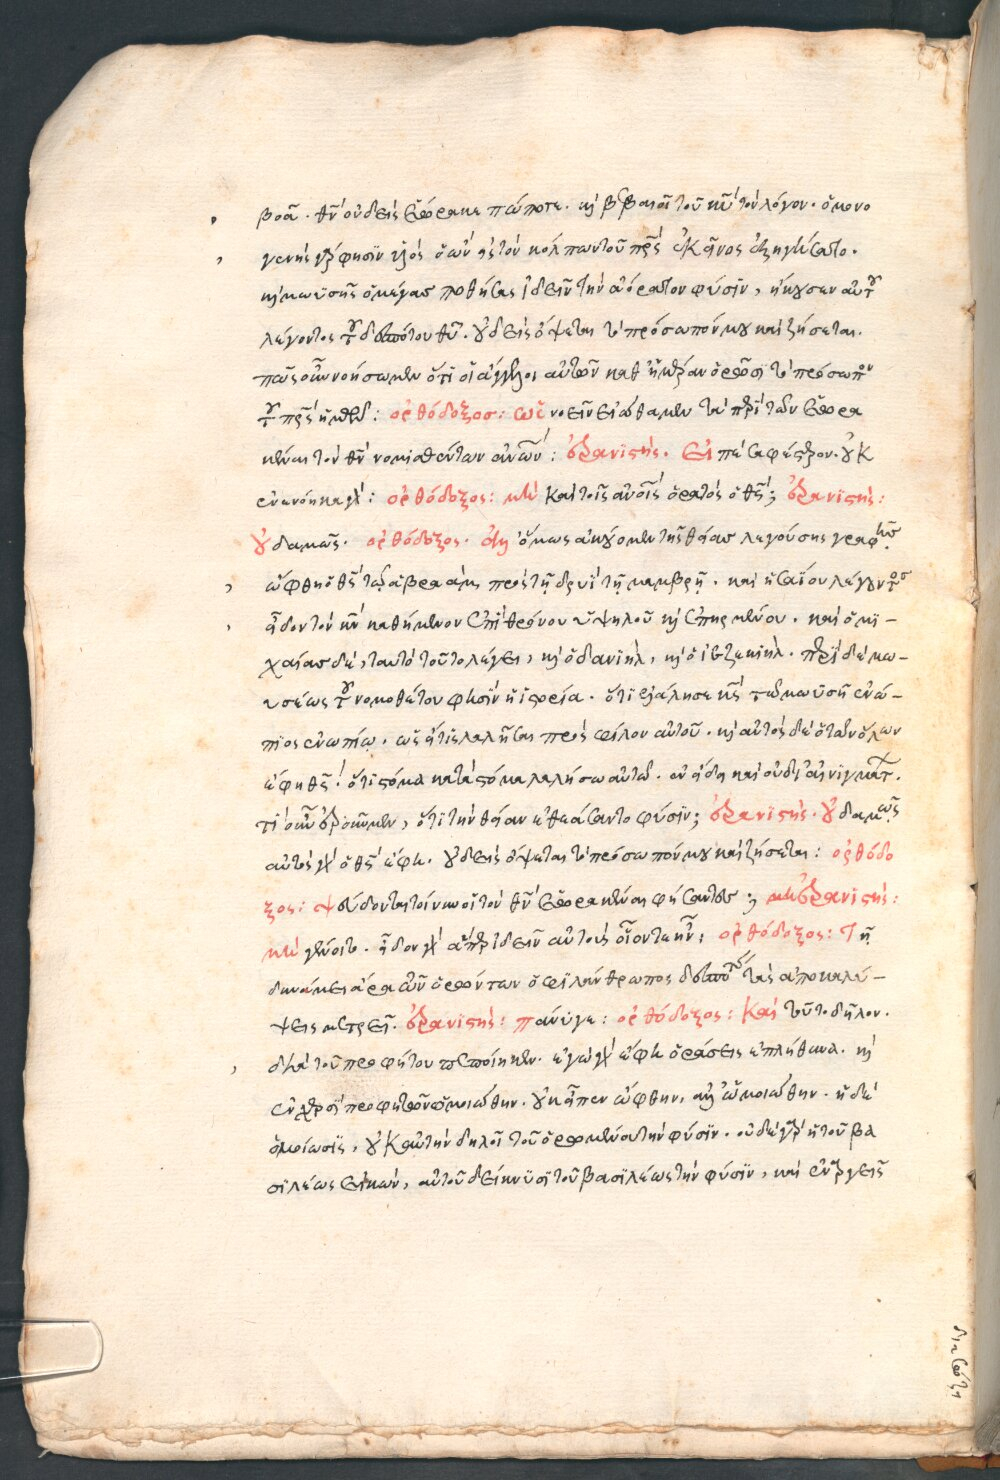 βοᾶ. θν̅ οὐδεὶς ἑώρακε πώποτε. κ̀ βεβαιοῖ τοῦ κυ̅ τὸν λόγον. ὁ μονο
γενὴς γάρ φησϊν υἱὸς ὁ ὢν εἰς τὸν κόλπον τοῦ πρ̅ς ἐκεῖνος ἐξηγήσατο.
κ̀ μωϋσῆς ὁ μέγας ποθήσας ἰδεῖν τὴν ἀόρατον φύσϊν, ἤκουσεν αὐτοῦ
λέγοντος τοῦ δεσπότου θυ̅. οὐδεὶς ὄψεται τὸ πρόσωπόν μου καὶ ζήσεται.
πῶς οὖν νοήσωμεν ὅτϊ οἱ ἄγγελοι αὐτῶν καθ ἡμέραν ὁρῶσϊ τὸ πρόσωπον
τοῦ πρ̅ς ἡμῶν: ὀρθόδοξος: ὡς νοεῖν εἰώθαμεν τὰ περὶ τῶν ἑωρα
κέναι τὸν θν̅ νομισθέντων ἀν̅ων: ἐρανϊστής. Εἰπὲ σαφέστερον. οὐκ
ἐνενόηκα γάρ: ὀρθόδοξος: μὴ καὶ τοῖς αν̅οις ὁρατὸς ὁ θς̅; ἐρανϊστής:
οὐδαμῶς. ὀρθόδοξος. ἀλλ ὅμως ἀκούομεν τῆς θείας λεγούσης γραφῆς
ὤφθη ὁ θς̅ τῷ ἀβραὰμ πρὸς τῇ δρυῒ τῇ μαμβρῇ. καὶ ἡσαΐου λέγοντος
εἶδον τὸν κν̅ καθήμενον ἐπῒ θρόνου ὑψηλοῦ κ̀ ἐπηρμένου. καὶ ὁ μϊ-
χαίας δὲ, ταυτὸ τοῦτο λέγει, κ̀ ὁ δανϊὴλ, κ̀ ὁ ἰεζεκϊήλ. περῒ δὲ μω-
υσέως τοῦ νομοθέτου φησῒν ἡ ἱστορία. ὅτϊ ἐλάλησε κς̅ τῷ μωϋσῇ ἐνώ-
πϊος ἐνωπίῳ. ὡς εἴ τϊς λαλῆσαι πρὸς φίλον αὐτοῦ. κ̀ αὐτὸς δὲ ὁ τῶν ὅλων
ἔφη θς̅. ὅτϊ στόμα κατὰ στόμα λαλήσω αὐτῷ. ἐν εἴδει καὶ οὐ δι αἰνιγμάτων.
τί οὖν ἐροῦμεν, ὅτϊ τὴν θείαν ἐθεάσαντο φύσϊν; ἐρανϊστής. οὐδαμῶς
αὐτὸς γὰρ ὁ θς̅ ἔφη. οὐδεὶς ὄψεται τὸ πρόσωπόν μου καὶ ζήσεται: ὀρθόδο
ξος: ψεύδονται τοίνυν οἱ τὸν θν̅ ἑωρακέναι φήσαντες; ἐρανϊστής:
μὴ γένοιτο. εἶδον γὰρ ἅπερ ἰδεῖν αὐτοὺς οἷόν τε ἦν; ὀρθόδοξος: Τῇ
δυνάμει ἄρα τῶν ὁρώντων ὁ φιλάνθρωπος δεσπότης τὰς ἀποκαλύ-
ψεις μετρεῖ. ἐρανϊστής: πάνυγε: ὀρθόδοξος: Καὶ τοῦτο δῆλον.
διὰ τοῦ προφήτου πεποίηκεν. ἐγὼ γὰρ ἔφη ὁράσεις ἐπλήθυνα. κ̀
ἐν χερσῒ προφητῶν ὡμοιώθην. οὐκ εἶπεν ὤφθην, ἀλλ ὡμοιώθην. ἡ δὲ
ὁμοίωσϊς, οὐκ αὐτὴν δηλοῖ τοῦ ὁρωμένου τὴν φύσϊν. οὐδὲ γὰρ ἡ τοῦ βα
σϊλέως εἰκὼν, αὐτοῦ δείκνυσϊ τοῦ βασϊλέως τὴν φύσϊν, καὶ ἐναργεῖς